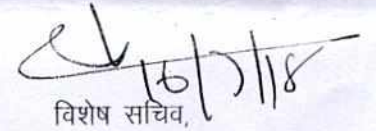 16/7/18
विशेष सचिव,